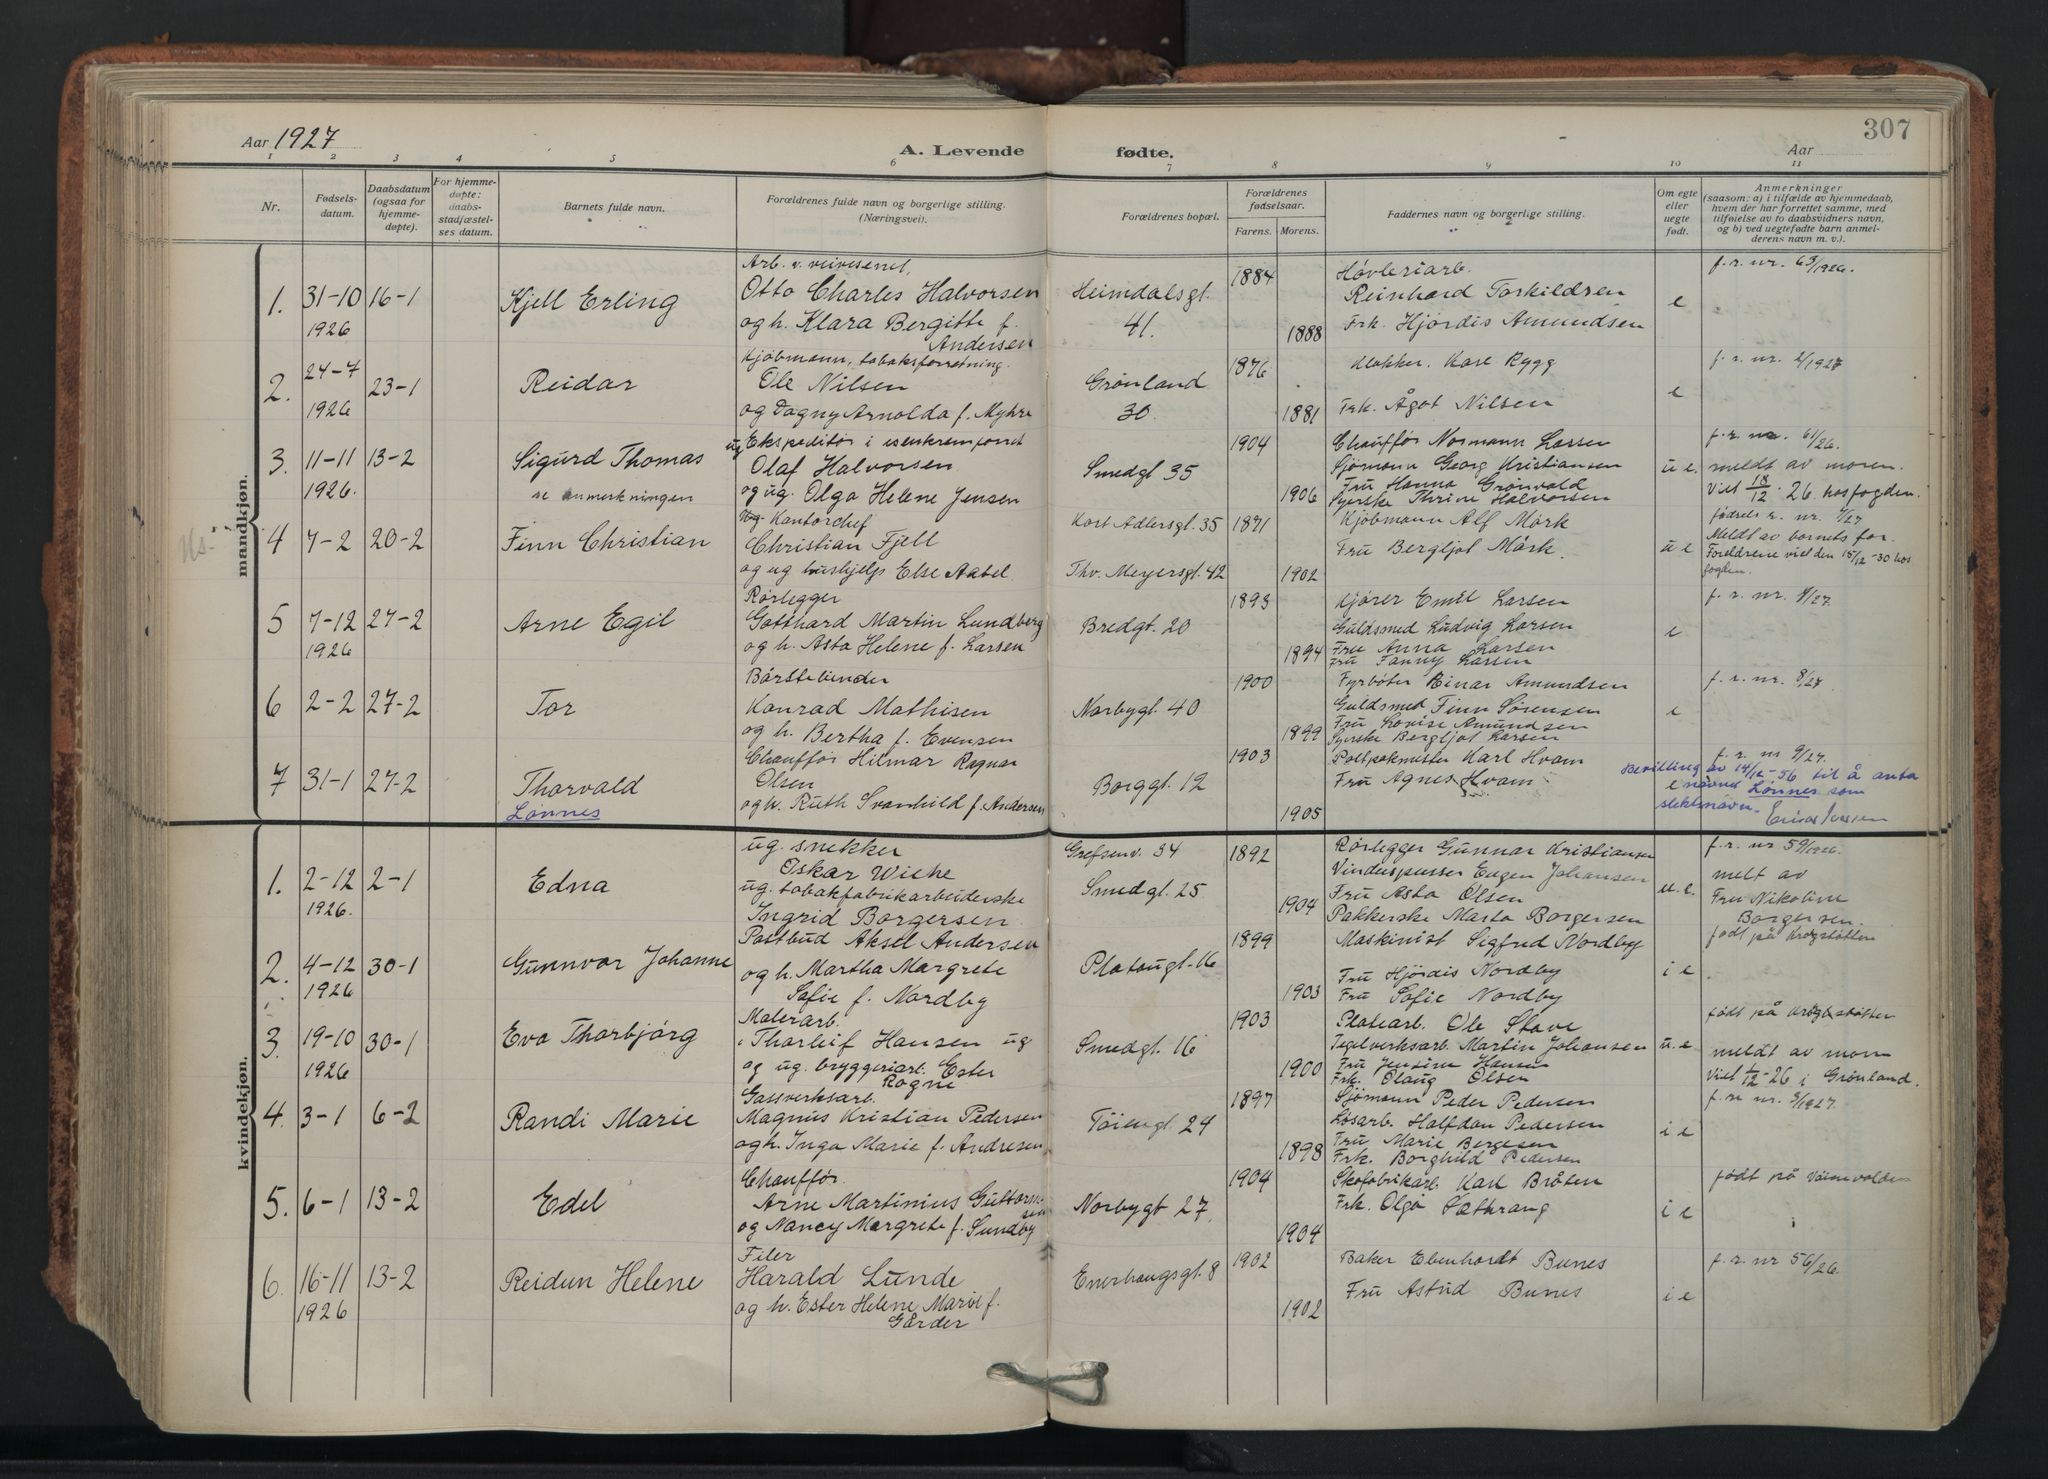 307
Aar 1927
A. Levende fødte.
Aar
1 2 3 4 5 6 7 8 9 10 11
Nr.
Fødsels-
datum.
Daabsdatum
(ogsaa for
hjemme-
døpte).
For hjemme-
døpte:
daabs-
stadfæstel-
ses datum.
Barnets fulde navn.
Forældrenes fulde navn og borgerlige stilling.
(Næringsvei).
Forældrenes bopæl.
Forældrenes
fødselsaar.
Farens. Morens.
Faddernes navn og borgerlige stilling.
Om egte
eller
uegte
født.
Anmerkninger
(saasom: a) i tilfælde av hjemmedaab,
hvem der har forrettet samme, med
tilføielse av to daabsvidners navn,
og b) ved uegtefødte barn anmel-
derens navn m. v.).
mandkjøn.
1. 31-10 1926 16-1
Kjell Erling
Arb. v. veivesenet,
Otto Charles Halvorsen
og h. Klara Bergitte f.
Andersen
Heimdalsgt.
41.
1884
1888
Høvleriarb.
Reinhard Torkildsen
Frk. Hjørdis Amundsen
e
f. r. nr. 63/1926.
2. 24-7 1926 23-1
Reidar
Kjøbmann, tobaksforretning.
Ole Nilsen
og Dagny Arnolda f. Myhre
Grønland
30.
1876
1881
Klokker. Karl Rygg
Frk. Ågot Nilsen
e
f. r. nr. 2/1927
3. 11-11 1926. 13-2
Sigurd Thomas
se anmerkningen
ug Ekspeditør i isenkramforret
Olaf Halvorsen
og ug. Olga Helene Jensen
Smedgt 35
1904
1906
Chauffør Normann Larsen
Sjømann Georg Kristiansen
Fru Hanna Grønvold
Syerske Thrine Halvorsen
u e.
f. r. nr. 61/26.
meldt av moren.
Viet 18/12 - 26 hos fogden.
4 7-2 20-2
Finn Christian
Kontorchef
Christian Fjell
og ug hushjelp Else Aabel
Kort Adlersgt. 35
Thv. Meyersgt. 42
1871
1902
Kjøbmann Alf Mørk
Fru Bergljot Mørk
u e
fødsels r. nr. 7/27
Meldt av barnets far.
Foreldrene viet den 15/12 -30 hos
fogden.
5 7-12 1926 27-2
Arne Egil
Rørlegger
Gotthard Martin Lundberg
og h. Asta Helene f. Larsen
Bredgt. 20
1893
1894
Kjører Emil Larsen
Guldsmed Ludvig Larsen
Frue Anna Larsen
Fru Fanny Larsen
e
f. r. nr. 4/27.
6 2-2 27-2
Tor
Børstebinder
Konrad Mathisen
og h. Bertha f. Evensen
Norbygt. 40
1900
1899
Fyrbøter Einar Amundsen
Guldsmed Finn Sørensen
Fru Lovise Amundsen
Syerske Bergljot Larsen
e
f. r. nr. 8/27
7 31-1 27-2
Thorvald
Lønnes
Chauffør Hilmar Ragnar
Olsen
og h. Ruth Svanhild f. Andersen
Borggt. 12
1903
1905
Postpakmester Karl Hvam
Fru Agnes Hvam
e
f. r. nr 9/27.
Bevilling av 14/12-56 til å anta
navnet Lønnes som
slektsnavn.
kvindekjøn.
1. 2-12 1926. 2-1
Edna
ug. snekker
Oskar Wiche
ug. tobakfabrikarbeiderske
Ingrid Borgersen.
Grefsenv. 34
Smedgt. 25
1892
1904
Rørlegger Gunnar Kristiansen
Vinduspusser Eugen Johansen
Fru Asta Olsen
Pakkerske Marta Borgersen
u. e.
f. r. nr 59/1926.
melt av
Fru Nikoline
Borgersen.
2. 4-12 1926 30-1
Gunnvor Johanne
Postbud Aksel Andersen
og h. Martha Margrete
Sofie f. Nordby
Platougt. 16
1899
1903
Maskinist Sigfred Nordby
Fru Hjørdis Nordby
Fru Sofie Nordby
i e
født på Krogstøtten
3. 19-10 1926 30-1
Eva Thorbjørg
Malerarb.
Thorleif Hansen ug
og ug. bryggeriarb. Ester
Rogne
Smedgt. 16
1903
1900
Platearb. Ole Stave
Tegelverksarb. Martin Johansen
Fru Jensine Hansen
Frk. Olaug Olsen
u. e
født på Krogstøtten
meldt av mora
Viet 1/12 - 26 i Grønland.
4. 3-1 6-2
Randi Marie
Gassverksarb.
Magnus Kristian Pedersen
og h. Inga Marie f. Andresen
Tøiengt. 24
1897
1898
Sjømann Peder Pedersen
Løsarb. Halfdan Pedersen
Fru Marie Bergesen
Frk. Borghild Pedersen
i e
f. r. nr. 3/1927.
5. 6-1 13-2
Edel
Chauffør.
Arne Martinius Guttorm-
sen
og Nancy Margrete f. Sundby
Norbygt 27,
1904
1904
Skofabrikarb. Karl Bråten
Frk. Olga Sæthrang
i e
født på
6. 16-11 1926 13-2
Reidun Helene
Filer
Harald Lunde
og h. Ester Helene Marie f.
Gårder
Enerhaugsgt. 8
1902
1902
Baker Ebenhardt Bunes
Fru Astrid Bunes
i e
f. r. nr 56/26.